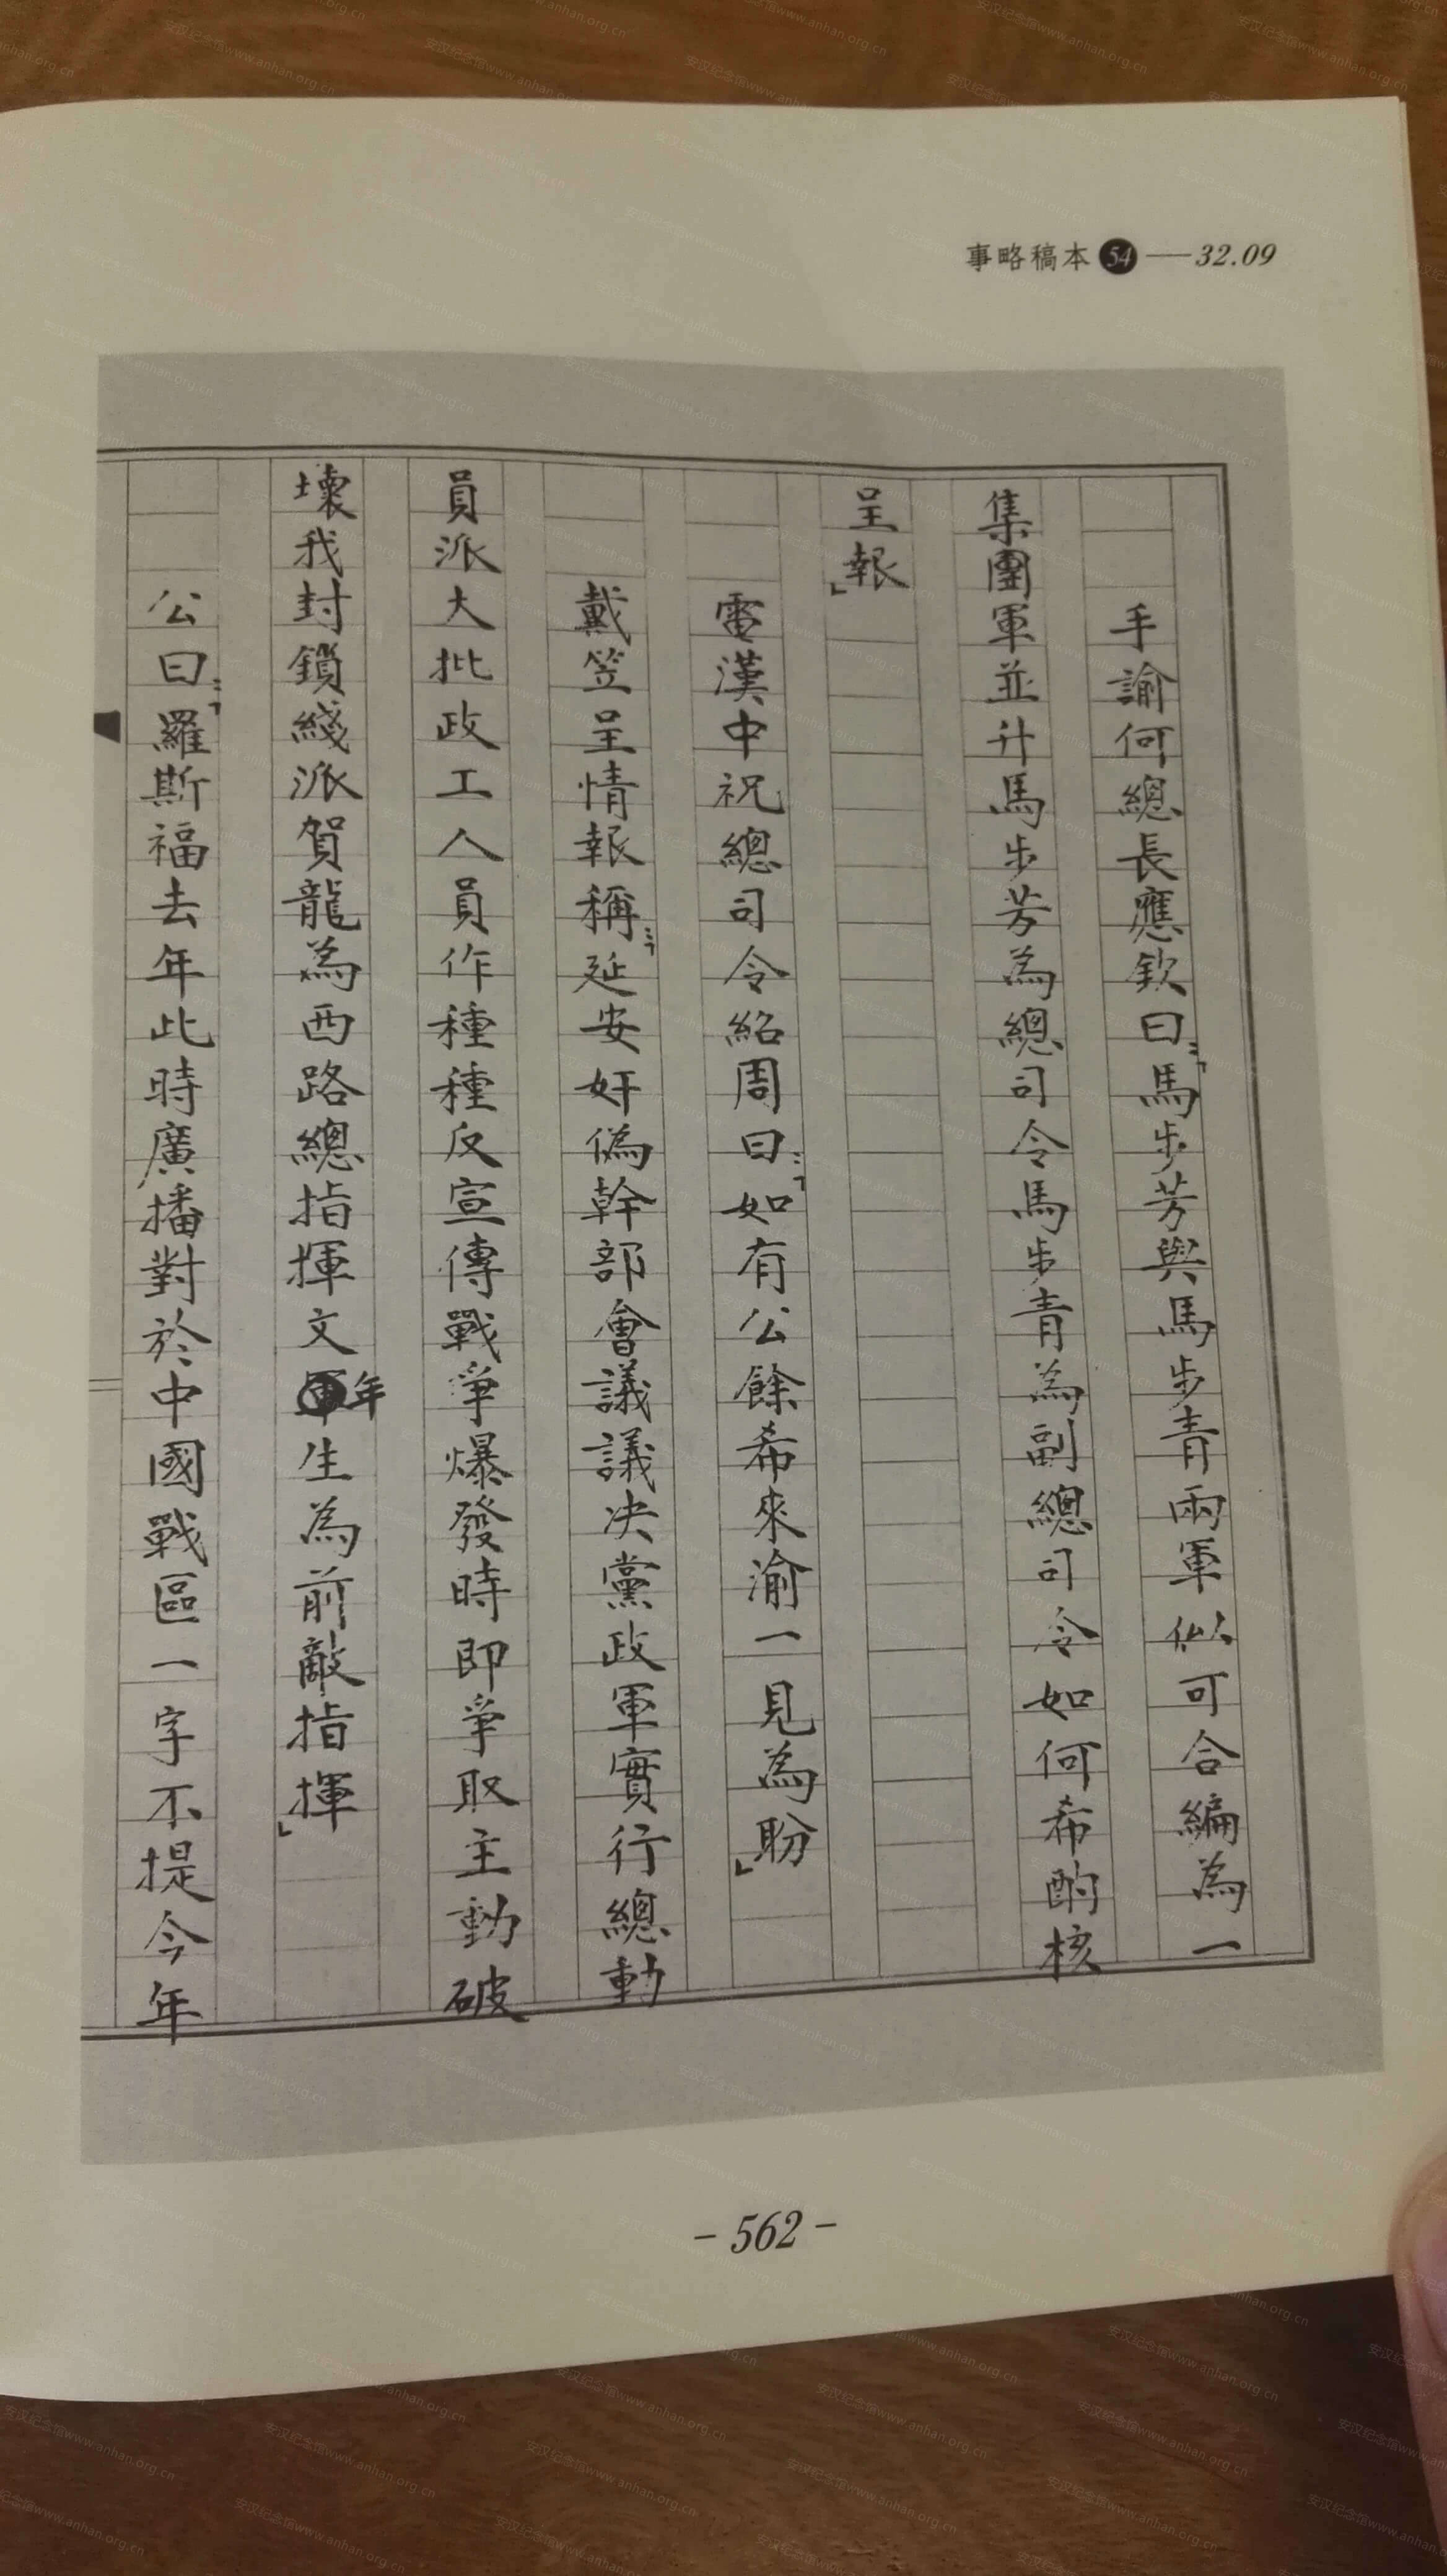 事略稿本 54 — 32.09
手諭何總長應欽曰：「馬步芳與馬步青兩軍似可合編為一
集團軍並升馬步芳為總司令馬步青為副總司令如何希酌核
呈報」
電漢中祝總司令紹周曰：「如有公餘希來渝一見為盼」
戴笠呈情報稱：「延安奸偽幹部會議議決黨政軍實行總動
員派大批政工人員作種種反宣傳戰爭爆發時即爭取主動破
壞我封鎖綫派賀龍為西路總指揮文年生為前敵指揮」
公曰：「羅斯福去年此時廣播對於中國戰區一字不提今年
- 562 -
安汉纪念馆www.anhan.org.cn